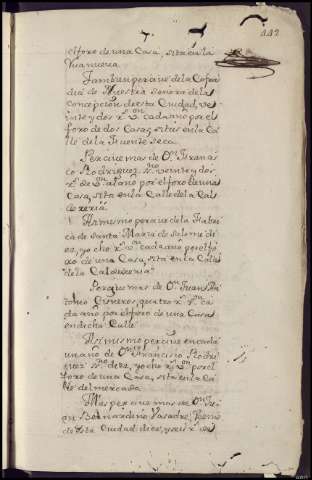 112
el foro de una Casa, sita en la
Rua nueva.
Tambien percive de la Cofra
dia de Nuestra Señora de la
Concepción de esta Ciudad, ve
inte y dos r.s v.on cada año por el
foro de dos Casas, sitas en la Ca
lle de la Fuente seca.
Percive mas de D.n
Rodriguez veinte y dos
r.s de v.on al año por el foro de una
Casa, sita en la Calle de la Cal
dereria.
Asimismo percive de la Fabri
ca de Santa Maria de Salome di
ez, y ocho r.s v.on cada año por el f
oro de una Casa, sita en la Calle
de la Caldereria.
Percive mas de D.n Juan An
tonio Cisneros, quatro r.s v.on ca
da año por el foro de una Casa
en dicha Calle.
Asimismo percive en cada
un año de D.n Francisco Rodri
guez diez, y ocho r.s v.on por el
foro de una Casa, sita en la Ca
lle del mercado.
Mas percive mas de D.n
Bernardino
de esta Ciudad diez, y seis r.s de